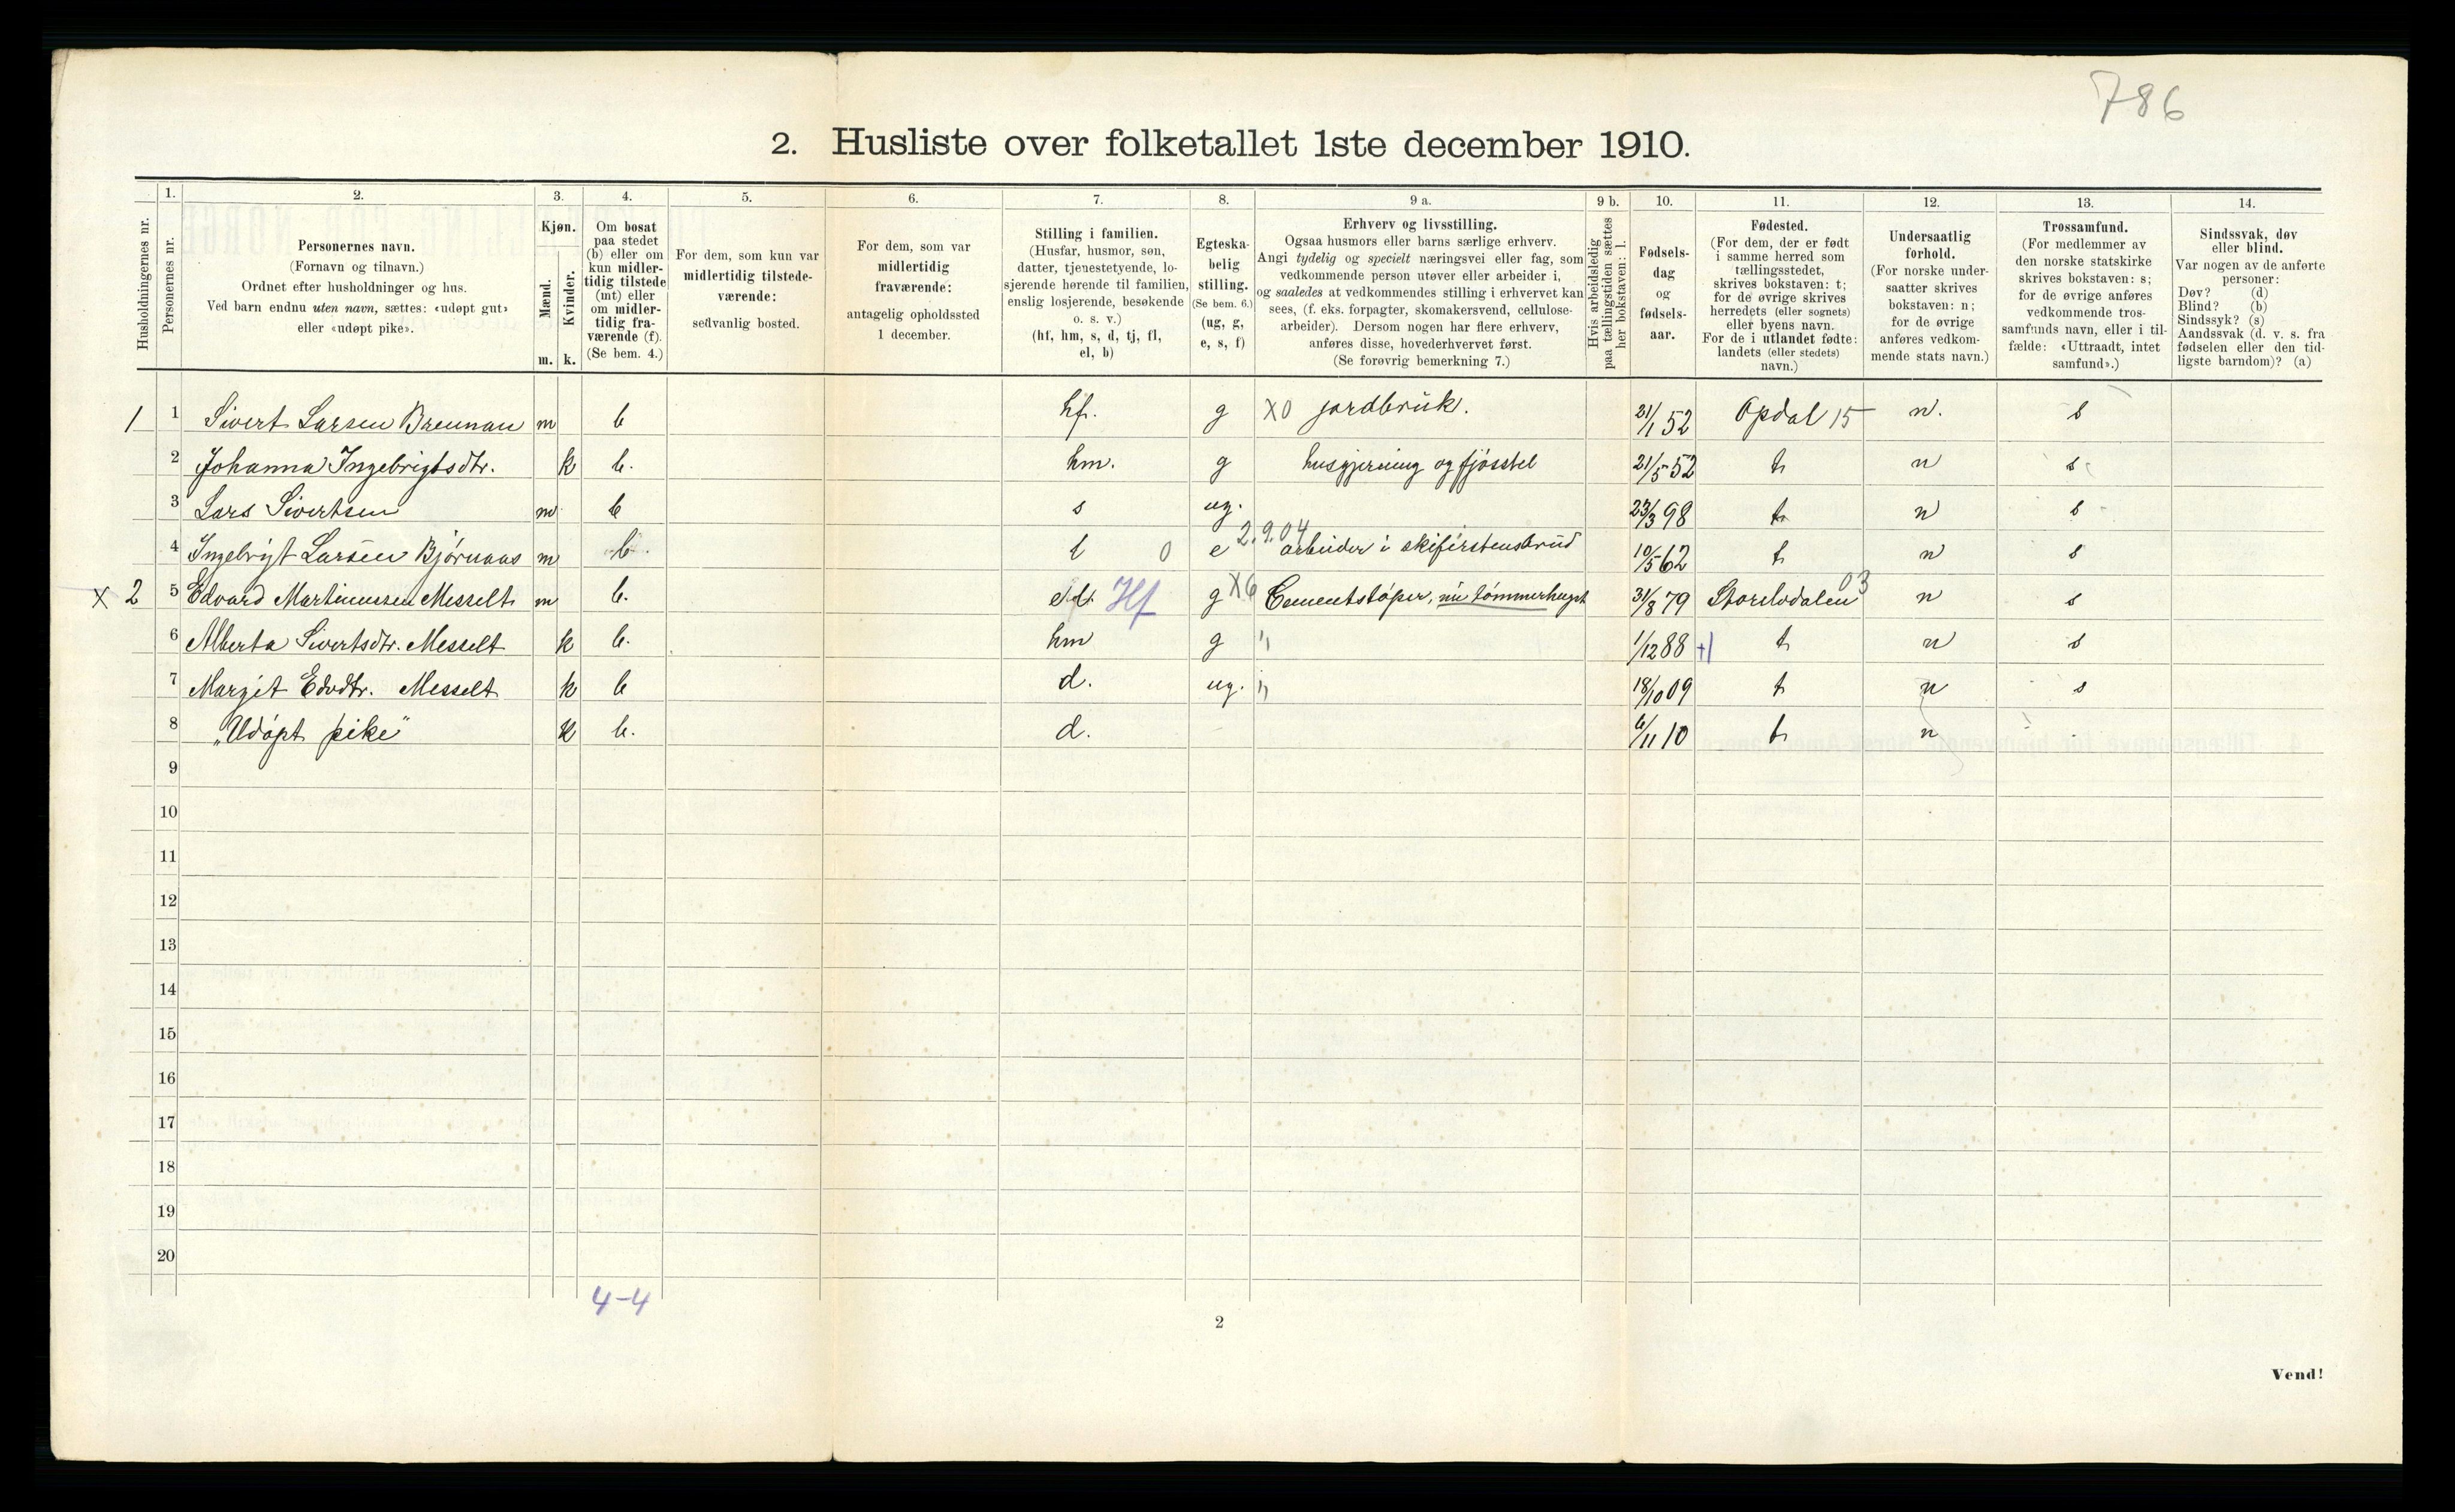 786
2. Husliste over folketallet 1ste december 1910.
Husholdningernes nr.
1.
Personernes nr.
2.
Personernes navn.
(Fornavn og tilnavn.)
Ordnet efter husholdninger og hus.
Ved barn endnu uten navn, sættes: «udøpt gut»
eller «udøpt pike».
3.
Kjøn.
Mænd.
Kvinder.
m. k.
4.
Om bosat
paa stedet
(b) eller om
kun midler-
tidig tilstede
(mt) eller
om midler-
tidig fra-
værende (f).
(Se bem. 4.)
5.
For dem, som kun var
midlertidig tilstede-
værende:
sedvanlig bosted.
6.
For dem, som var
midlertidig
fraværende:
antagelig opholdssted
1 december.
7.
Stilling i familien.
(Husfar, husmor, søn,
datter, tjenestetyende, lo-
sjerende hørende til familien,
enslig losjerende, besøkende
o. s. v.)
(hf, hm, s, d, tj, fl,
el, b)
8.
Egteska-
belig
stilling.
(Se bem. 6.)
(ug, g,
e, s, f)
9 a.
Erhverv og livsstilling.
Ogsaa husmors eller barns særlige erhverv.
Angi tydelig og specielt næringsvei eller fag, som
vedkommende person utøver eller arbeider i,
og saaledes at vedkommendes stilling i erhvervet kan
sees, (f. eks. forpagter, skomakersvend, cellulose-
arbeider). Dersom nogen har flere erhverv,
anføres disse, hovederhvervet først.
(Se forøvrig bemerkning 7.)
9 b.
Hvis arbeidsledig
paa tællingstiden sættes
her bokstaven: l.
10.
Fødsels-
dag
og
fødsels-
aar.
11.
Fødested.
(For dem, der er født
i samme herred som
tællingsstedet,
skrives bokstaven: t;
for de øvrige skrives
herredets (eller sognets)
eller byens navn.
For de i utlandet fødte:
landets (eller stedets)
navn.)
12.
Undersaatlig
forhold.
(For norske under-
saatter skrives
bokstaven: n;
for de øvrige
anføres vedkom-
mende stats navn.)
13.
Trossamfund.
(For medlemmer av
den norske statskirke
skrives bokstaven: s;
for de øvrige anføres
vedkommende tros-
samfunds navn, eller i til-
fælde: «Uttraadt, intet
samfund».)
14.
Sindssvak, døv
eller blind.
Var nogen av de anførte
personer:
Døv? (d)
Blind? (b)
Sindssyk? (s)
Aandssvak (d. v. s. fra
fødselen eller den tid-
ligste barndom)? (a)
1 1 Sivert Larsen Brennan m b hf. g X0 jordbruk. 21/1 52 Opdal 15 n. s
2 Johanna Ingebrigtsdtr. k b. hm. g husgjerning og fjøsstel 21/5 52 t n s
3 Lars Sivertsen m b s ug. 23/3 98 t n s
4 Ingebrigt Larsen Bjørnaas m b l 0 e 2.9.04 arbeider i skiferstensbrud 10/5 62 t n s
X 2 5 Edvard Martinussen Messelt m b. el. Hf g X6 Cementstøper, nu tømmerhugst 31/8 79 Storelvdalen 03 n s
6 Alberta Sivertsdtr. Messelt k b. hm g " 1/12 88 +1 t n s
7 Margit Edvdtr. Messelt k b d. ug. " 18/10 09 t n s
8 „Udøpt pike" k b. d. 6/11 10 t n
9
10
11
12
13
14
15
16
17
18
19
20
4-4
2
Vend!